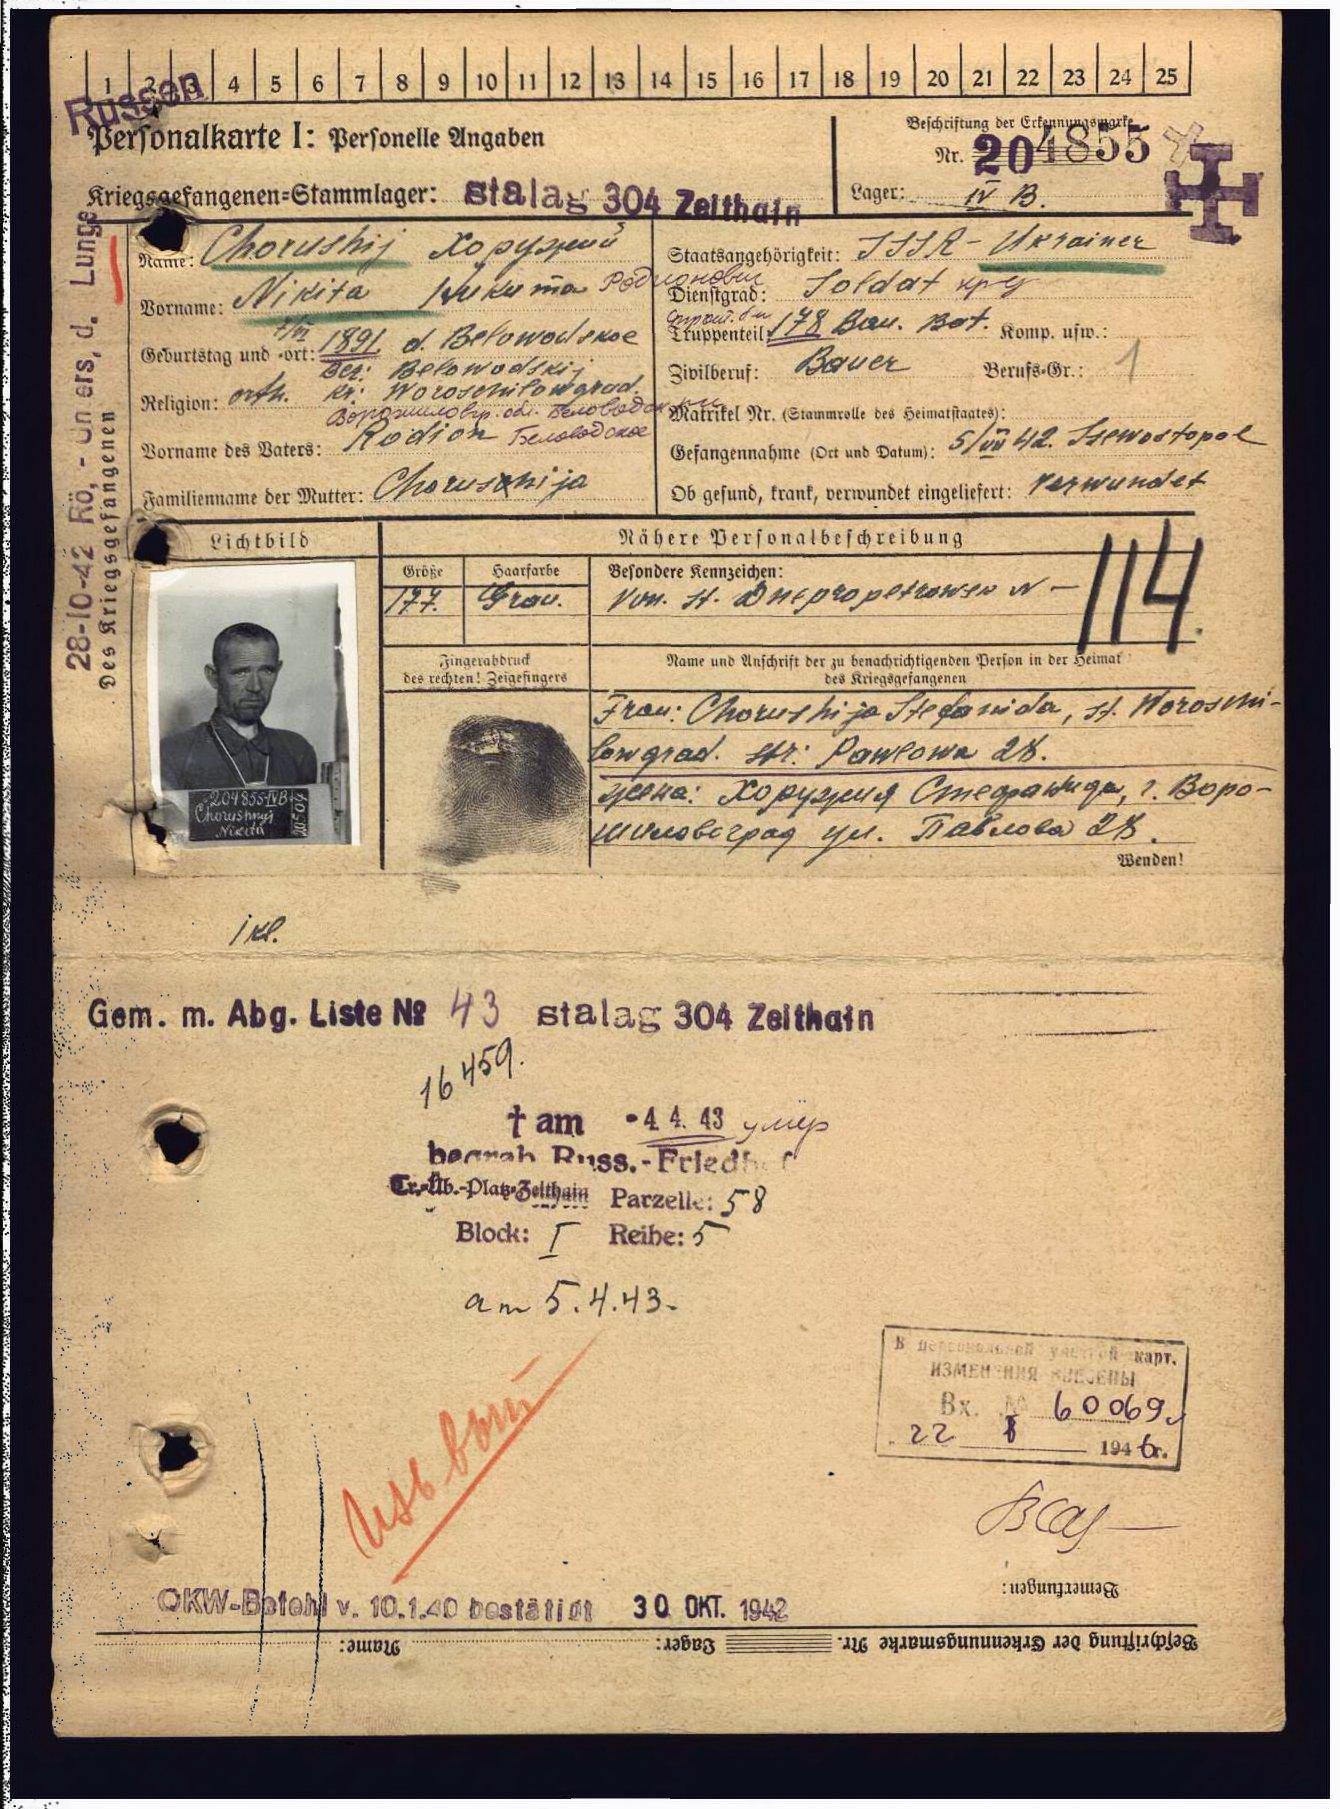 1 2 3 4 5 6 7 8 9 10 11 12 13 14 15 16 17 18 19 20 21 22 23 24 25
Russen
Personalkarte I: Personelle Angaben
Beschriftung der Erkennungsmarke
Nr. 204855
Kriegsgefangenen=Stammlager: stalag 304 Zeithain
Lager: IV B.
Name: Chorushij Хоружий
Vorname: Nikita Никита Родионович
Geburtstag und =ort: 1891 d. Belowodskoe
Bez: Belowodskij
Religion: orth. Kr: Woroschilowgrad.
Ворошиловгр. обл. Беловодский
Vorname des Vaters: Rodion Беловодское
Familienname der Mutter: Choruschija
Staatsangehörigkeit: SSSR - Ukrainer
Dienstgrad: Soldat кр
Truppenteil: 178 Bau. Bat. Komp. usw.:
Zivilberuf: Bauer Berufs=Gr.: 1
Matrikel Nr. (Stammrolle des Heimatstaates):
Gefangennahme (Ort und Datum): 5/VII 42. Ssewostopol
Ob gesund, krank, verwundet eingeliefert: verwundet
28-10-42 Rö,-Un ers, d. Lunge
Des Kriegsgefangenen
Lichtbild
Nähere Personalbeschreibung
Größe Haarfarbe Besondere Kennzeichen:
177. Grau. Von. st. Dnepropetrowsk N - 114.
Fingerabdruck
des rechten! Zeigefingers
Name und Anschrift der zu benachrichtigenden Person in der Heimat
des Kriegsgefangenen
Frau: Chorushija Stefanida, st. Woroschi-
lowgrad. str: Pawlowa 28.
жена: Хоружия Стефанида, г. Воро-
шиловоград ул. Павлова 28.
Wenden!
204855-IVB
Chorushnyj
Nikita
1 kl.
Gem. m. Abg. Liste № 43 stalag 304 Zeithain
16459.
† am -4. 4. 43 умер
begrab Russ.-Friedhof
Tr.=Üb.-Platz=Zeithain Parzelle: 58
Block: I Reihe: 5
am 5.4.43.
В персональной учетной карт.
ИЗМЕНЕНИЯ ВНЕСЕНЫ
Вх. № 60069
22 8 1946г.
Bemerkungen:
OKW-Befehl v. 10.1.40 bestätigt 30. OKT. 1942
Beschriftung der Erkennungsmarke Nr. Lager: Name: